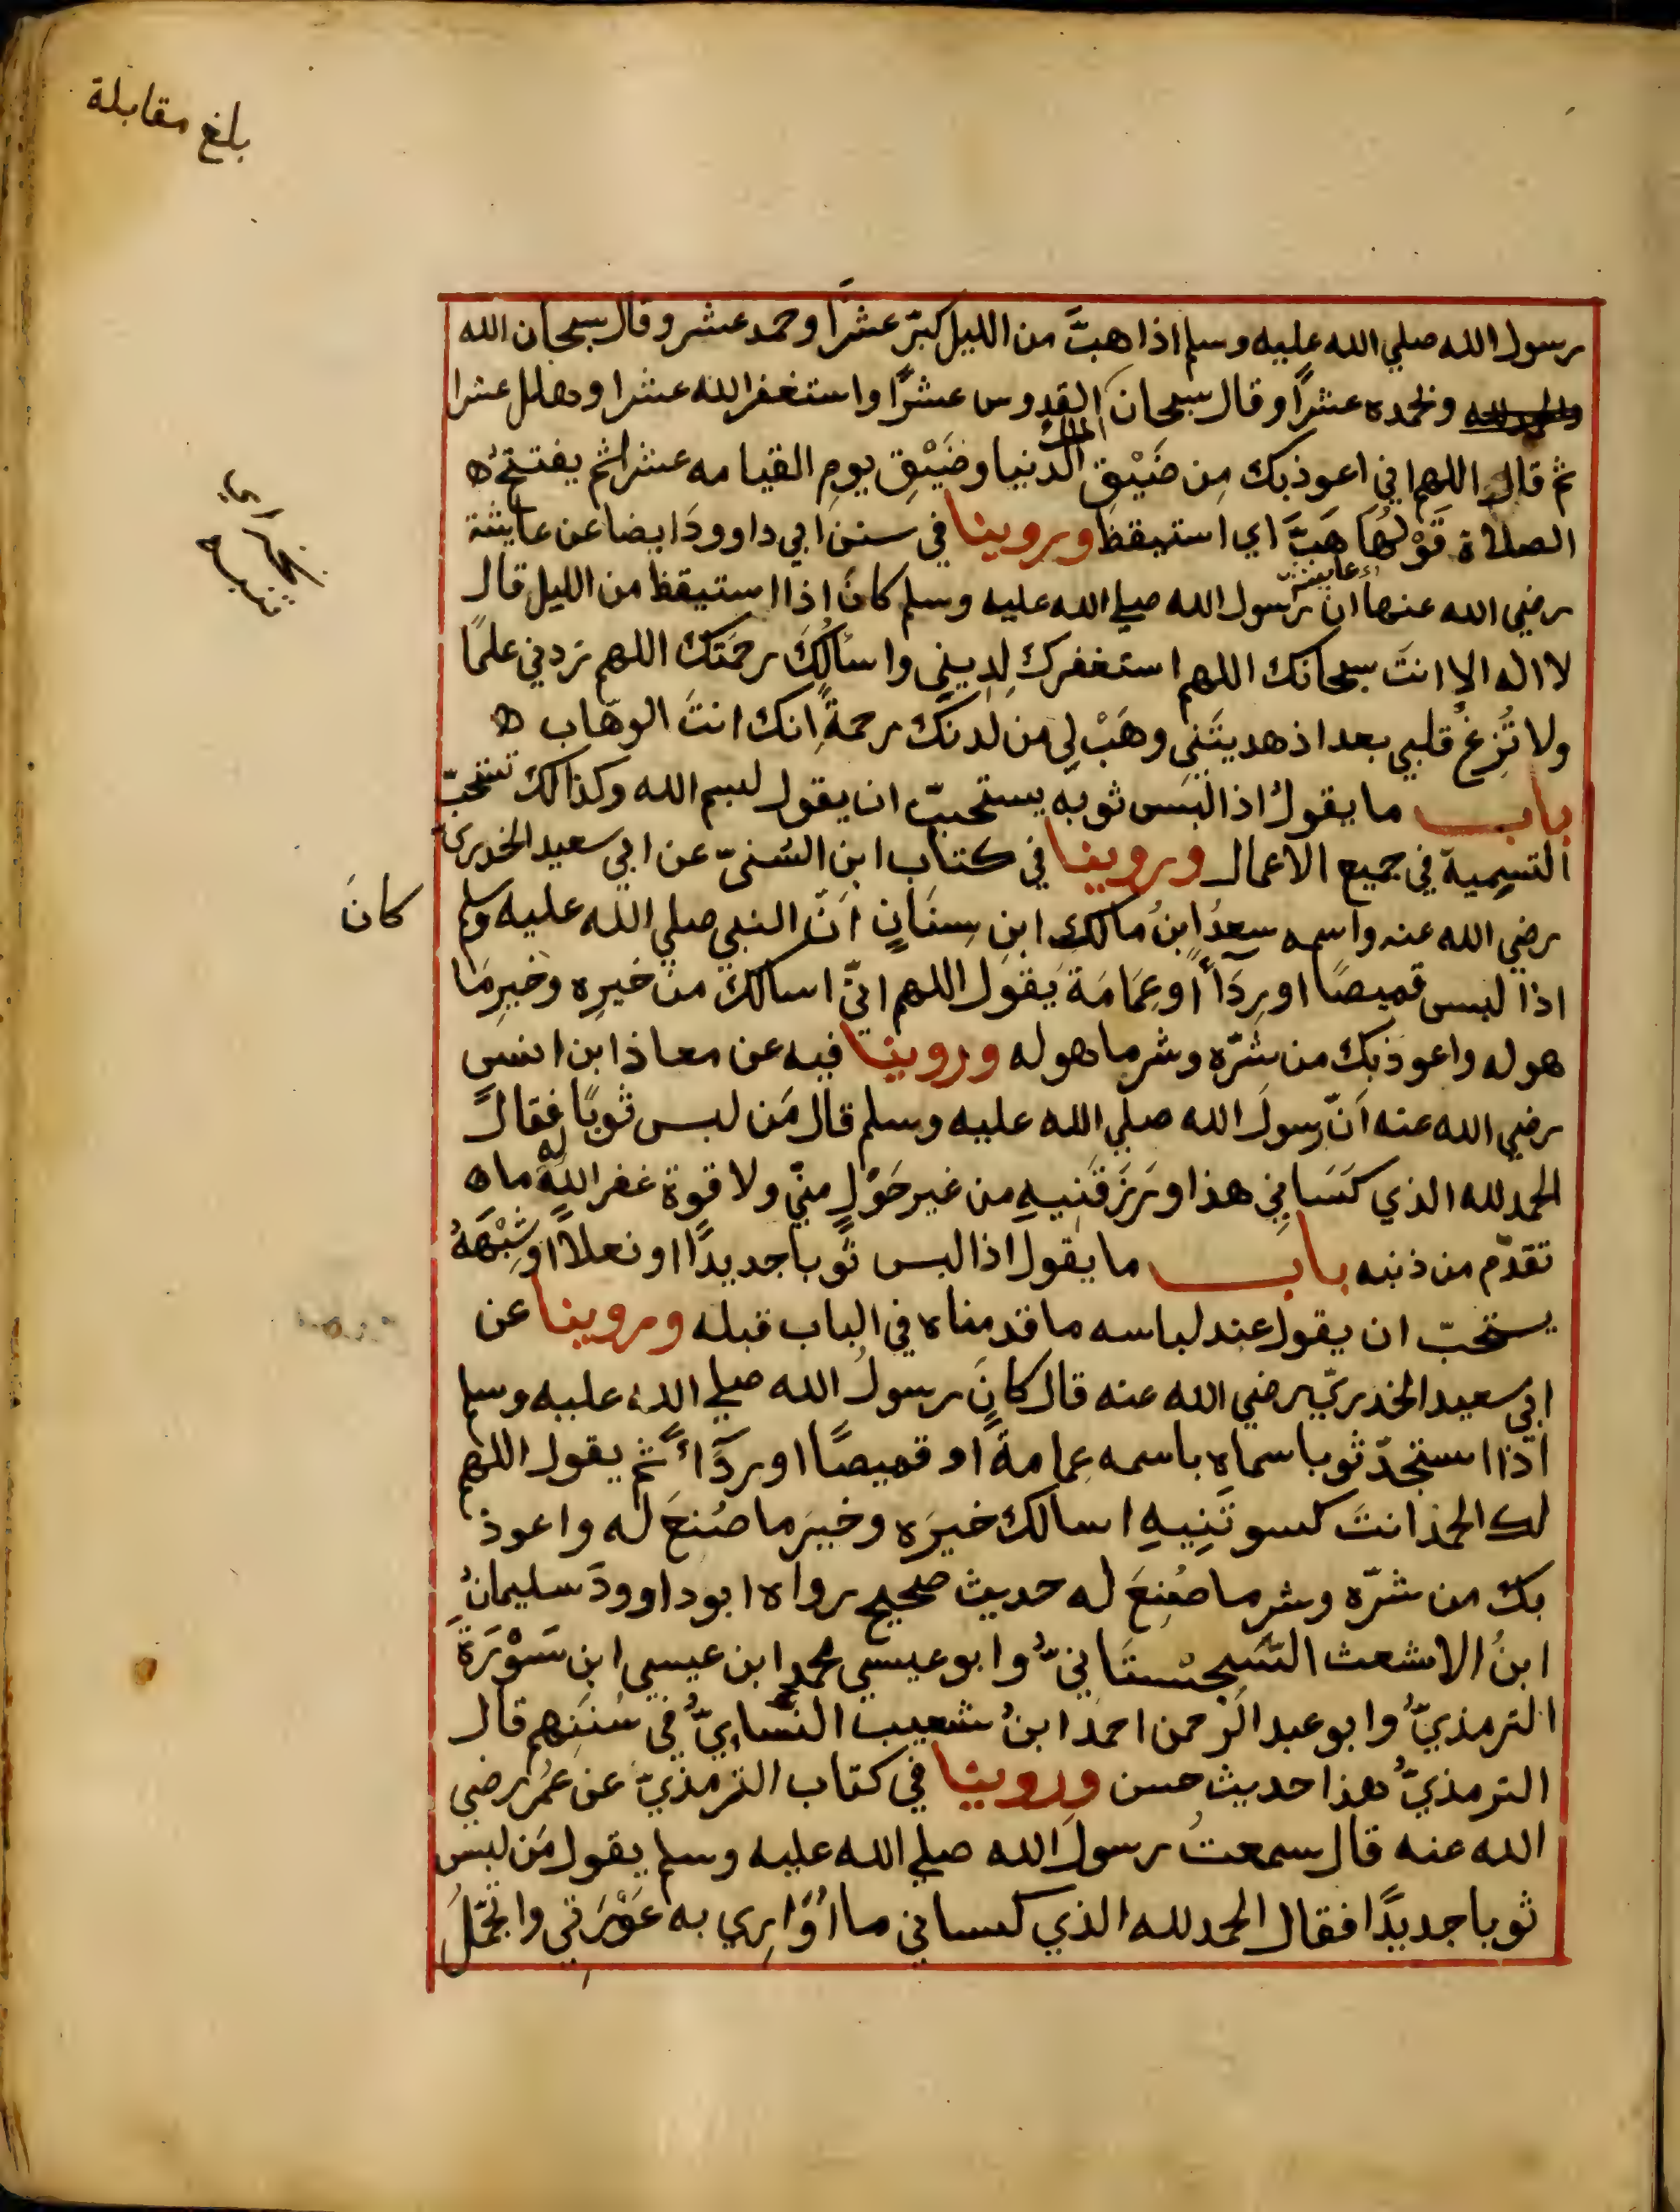 بلغ مقابلة
رسول الله صلي الله عليه وسلم اذا هبَّ من الليل كبرّ عشرًا وحمد عشر وقال سبحان الله
والحمدلله وبحمده عشرًا وقال سبحان الملك القدوس عشرًا واستغفر الله عشرا وهلل عشرا
ثم قال اللهم اني اعوذ بك مِن ضَيْقِ الدنيا وضَيْقِ يومِ القيامه عشرا ثم يفتتحُ ه
الصلاة قَوْلُهَا هَبَّ اي استيقظ وروينا في سنن ابي داوودَ ايضا عن عايشة
رضي الله عنها ان رسول الله صلي الله عليه وسلم كانَ اذا استيقظ من الليل قال
لا اله الا انتَ سبحانك اللهم استغفرك لِذنبي واسئالُكَ رحمَتَك اللهم زدني علمًا
ولا تُزِغْ قلبي بعد اذ هديتَني وهَبْ لي من لدنك رحمةً اِنك انتَ الوهّاب ه
باب ما يقولُ اذا لبَس ثوبه يستحبّ ان يقول لبسم الله وكذالك تستحبّ
التسمِية في جميع الاعمال وروينا في كتاب ابن السُنيّ عن ابي سعيد الخدري
رضي الله عنه واسمه سعدُ ابنُ مالكِ ابنِ سِنَانٍ اَنّ النبي صلي الله عليه وسلم
كانَ
اذا لبس قميصًا او رِدَأً أو عِمَامَة يَقول اللهم انّي اسالكَ من خيرِه وخيرِ مَا
هو له واعوذ بك من شرّه وشر ما هو له وروينا فيه عن معاذ ابن انسٍ
رضي الله عنه اَنّ رسولَ الله صلي الله عليه وسلم قال مَن لبس ثوبًا فقالَ
الحمدلله الذي كَسَانِي هذا ورَزَقَنِيهِ من غير حَوْلٍ منيّ ولا قوة غفر اللهُ له ما ه
تقدّم من ذنبه باب ما يقول اذا لبس ثوبا جديدًا او نعلًا او شِبْهَهُ
يستحبّ ان يقول عند لباسه ما قدمناه في الباب قبله وروينا عن
ابي سعيد الخدريّ رضي الله عنه قال كانَ رسولُ الله صلي الله عليه وسلم
اذا استجدّ ثوبا سماه باسمه عِمامةً او قميصًا او ردَأً ثم يقول اللهم
لك الحمد انتَ كسوتَنِيهِ اسالك خيرَه وخيرَ ما صُنعَ له واعوذ
بك من شرّه وشر ما صُنِعَ له حديث صحيح رواه ابو داوودَ سليمانُ
ابنُ الاشعث السِّجِسْتَانيُّ وابو عيسي محمد ابن عيسي ابنِ سَوْرَة
الترمذيُّ وابو عبد الرحمن احمد ابنُ شعيب النسايُّ في سُننِهم قال
الترمذيُّ هذا حديث حسن وروينا في كتاب الترمذيّ عن عُمَر رضي
الله عنه قال سمعتُ رسول الله صلي الله عليه وسلم يقول مَن لبس
ثوبا جديدًا فقال الحمدلله الذي كساني ما اُوَارِي به عَوْرَتي واتجمّلُ